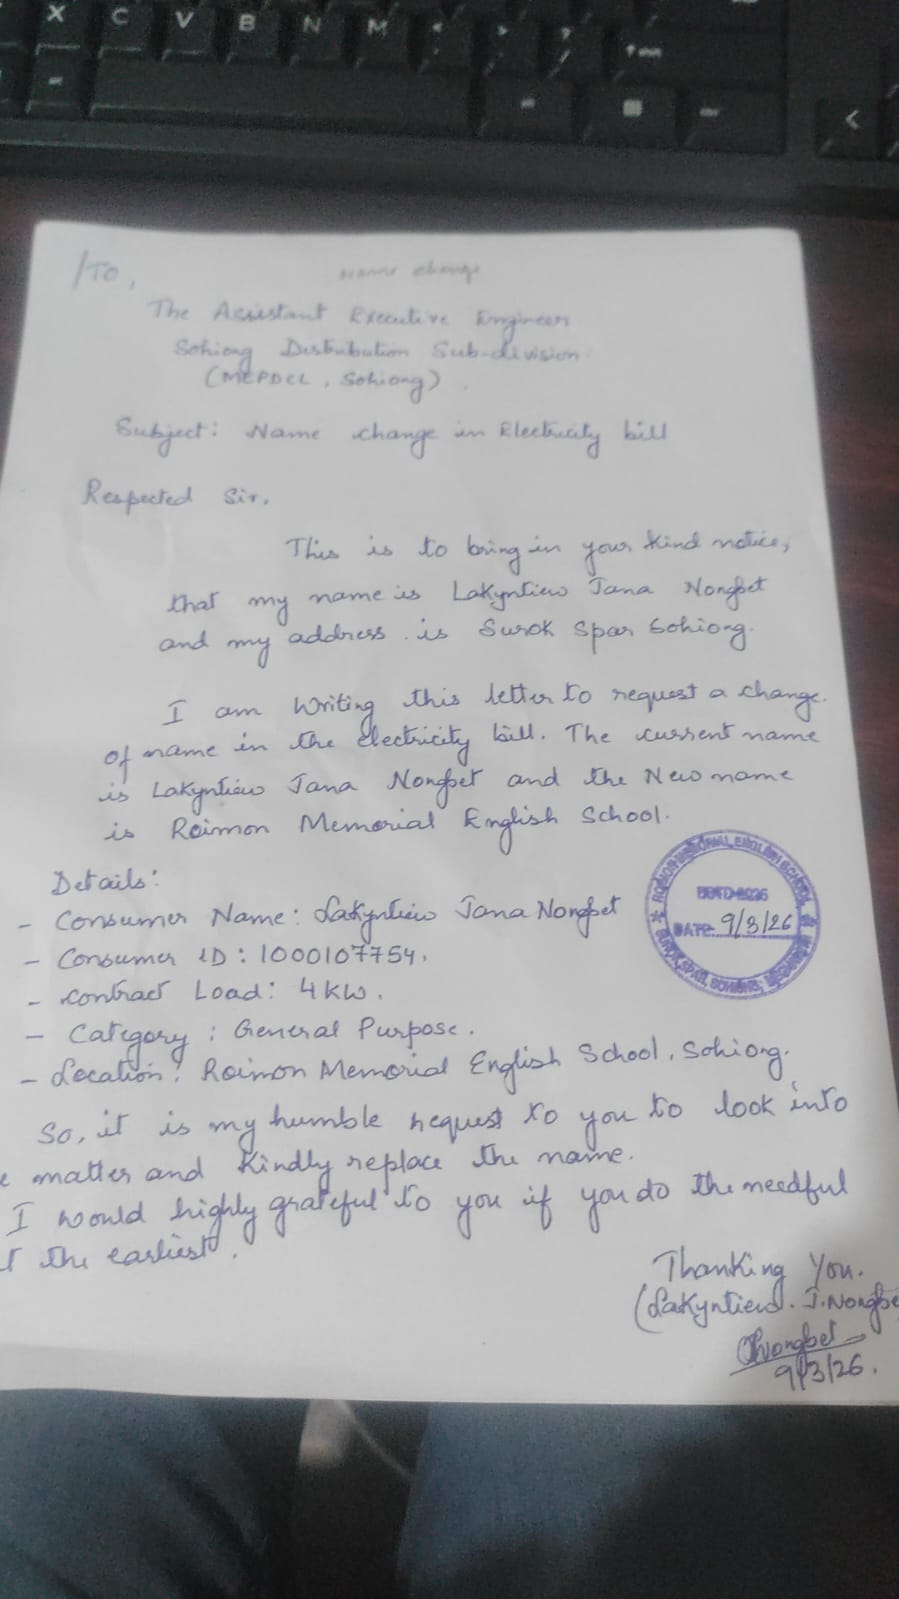 X C V B N M
/To,
Name change
The Assistant Executive Engineer
Sohiong Distribution Sub-division.
(MEPDCL, Sohiong).
Subject: Name change in Electricity bill
Respected Sir,
This is to bring in your kind notice,
that my name is Lakyntiew Jana Nongbet
and my address is Surok Spar Sohiong.
I am writing this letter to request a change.
of name in the electricity bill. The current name
is Lakyntiew Jana Nongbet and the New name
is Roimon Memorial English School.
Details:
- Consumer Name: Lakyntiew Jana Nongbet
- Consumer ID: 1000107754.
- Contract Load: 4KW.
- Category: General Purpose.
- Location: Roimon Memorial English School, Sohiong.
ROIMON MEMORIAL ENGLISH SCHOOL
DATE 9/3/26
SUROK SPAR, SOHIONG
So, it is my humble request to you to look into
e matter and Kindly replace the name.
I would highly grateful to you if you do the needful
t the earliest.
Thanking You.
(Lakyntiew. J. Nongbe
Nongbet
9/3/26.